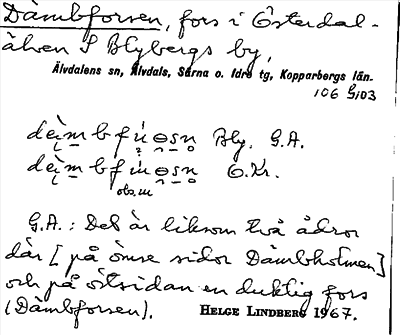 Dàmbforsen, fors i Österdal-
älven S Blybergs by,
Älvdalens sn, Älvdals, Särna o. Idre tg, Kopparbergs län.
106 G103
Bly. G.A.
Ö.Kr.
obs. m
G.A.: Det är liksom två ådror
där [på ömse sidor Dàmbholmen]
och på östsidan en duktig fors
(Dàmbforsen). HELGE LINDBERG 1967.